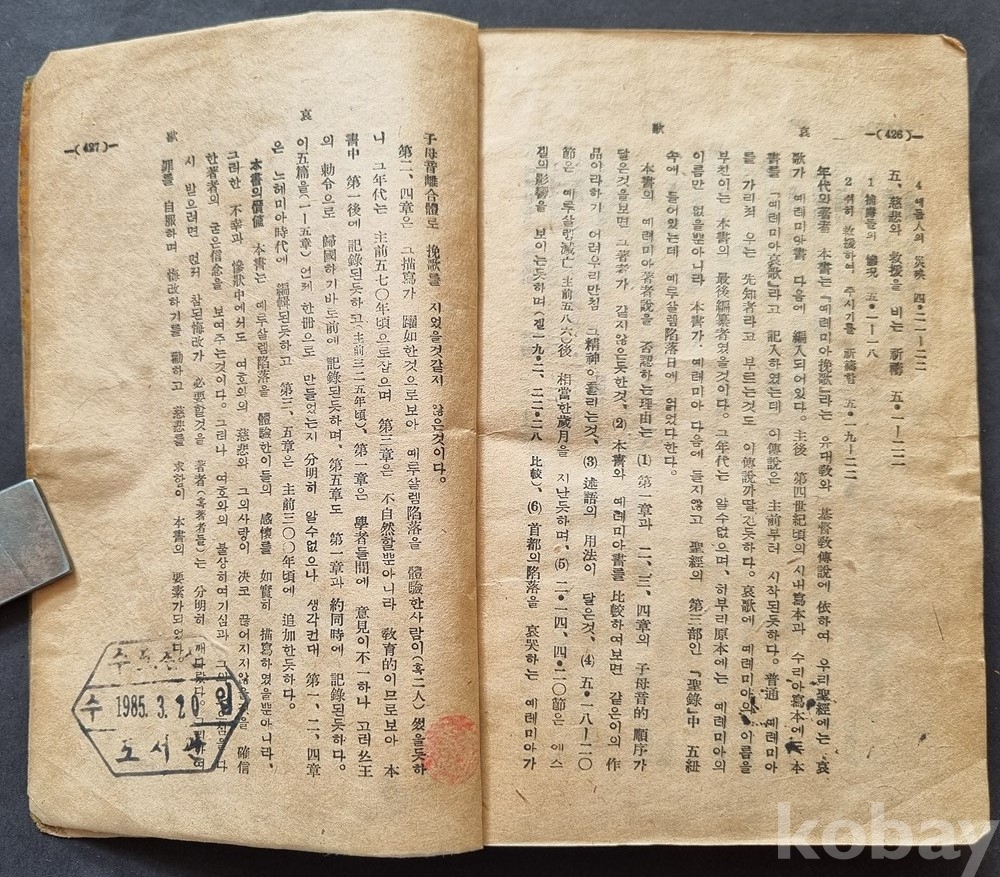 —(426)—
哀
歌
4 예돔人의 災殃 四·二一-二二
五、慈悲와 救援을 비는 祈禱 五·一-二二
1 捕虜들의 慘况 五·一-一八
2 쉬히 救援하여 주시기를 祈禱함 五·一九-二二
年代와著者 本書는『예레미아挽歌』라는 유대敎와 基督敎傳說에 依하여 우리聖經에는 哀
歌가 예레미아書 다음에 編入되어있다。主後 第四世紀頃의 시내寫本과 수리아寫本에도 本
書를『예레미아哀歌』라고 記入하였는데 이傳說은 主前부터 시작된듯하다。普通 예레미아
를 가리죄 우는 先知者라고 부르는것도 이傳說까딸긴듯하다。哀歌에 예레미아의 이름을
부친이는 本書의 最後編纂者였을것이다。그年代는 알수없으며、하부리原本에는 예레미아의
이름만 없을뿐아니라 本書가、예레미아 다음에 들지않고 聖經의 第三部인『聖錄』中 五紐
속에 들어있는데 예루살렘陷落日에 읽었다한다。
本書의 예레미아著者說을 否認하는理由는 (1) 第一章과 二、三、四章의 子母音的 順序가
달은것을보면 그著者가 같지않은듯한것、(2) 本書와 예레미아書를 比較하여보면 같은이의 作
品이라하기 어려우리만침 그精神이 틀리는것、(3) 述語의 用法이 달은것、(4) 五·一八-二〇
節은 예루살렘滅亡 主前五八六後 相當한歲月을 지난듯하며、(5) 二·一四、四·二〇節은 에스
겔의影響을 보이는듯하며(겔一九·二、二二·二八 比較)、(6) 首都의陷落을 哀哭하는 예레미아가
—(427)—
哀
歌
子母音離合體로 挽歌를 지었을것같지 않은것이다。
第二、四章은 그描寫가 躍如한것으로보아 예루살렘陷落을 體驗한사람이(혹二人) 썼을듯하
니 그年代는 主前五七〇年頃으로잡으며 第三章은 不自然할뿐아니라 敎育的이므로보아 本
書中 第一後에 記錄된듯하고(主前三二五年頃)、第一章은 學者들間에 意見이不一하나 고레쓰王
의 勅令으로 歸國하기바로前에 記錄된듯하며、第五章도 第一章과 約同時에 記錄된듯하다。
이五篇을(一-五章) 언제 한冊으로 만들었는지 分明히 알수없으나 생각컨대 第一、二、四章
은 느헤미아時代에 編輯된듯하고 第三、五章은 主前三〇〇年頃에 追加한듯하다。
本書의價値 本書는 예루살렘陷落을 體驗한이들의 感懷를 如實히 描寫하였을뿐아니라、
그러한 不幸과 慘狀中에서도 여호와의 慈悲와 그의사랑이 決코 끊어지지않을것을 確信
한著者의 굳은信念을 보여주는것이다。그러나 여호와의 불상히여기심과
시 받으려면 먼저 참된悔改가 必要할것을 著者(혹著者들)는 分明히 깨닫았다。
罪를 自服하며 悔改하기를 勸하고 慈悲를 求함이 本書의 要素가되었다。
수
1985. 3. 20
일
도서관
kobay